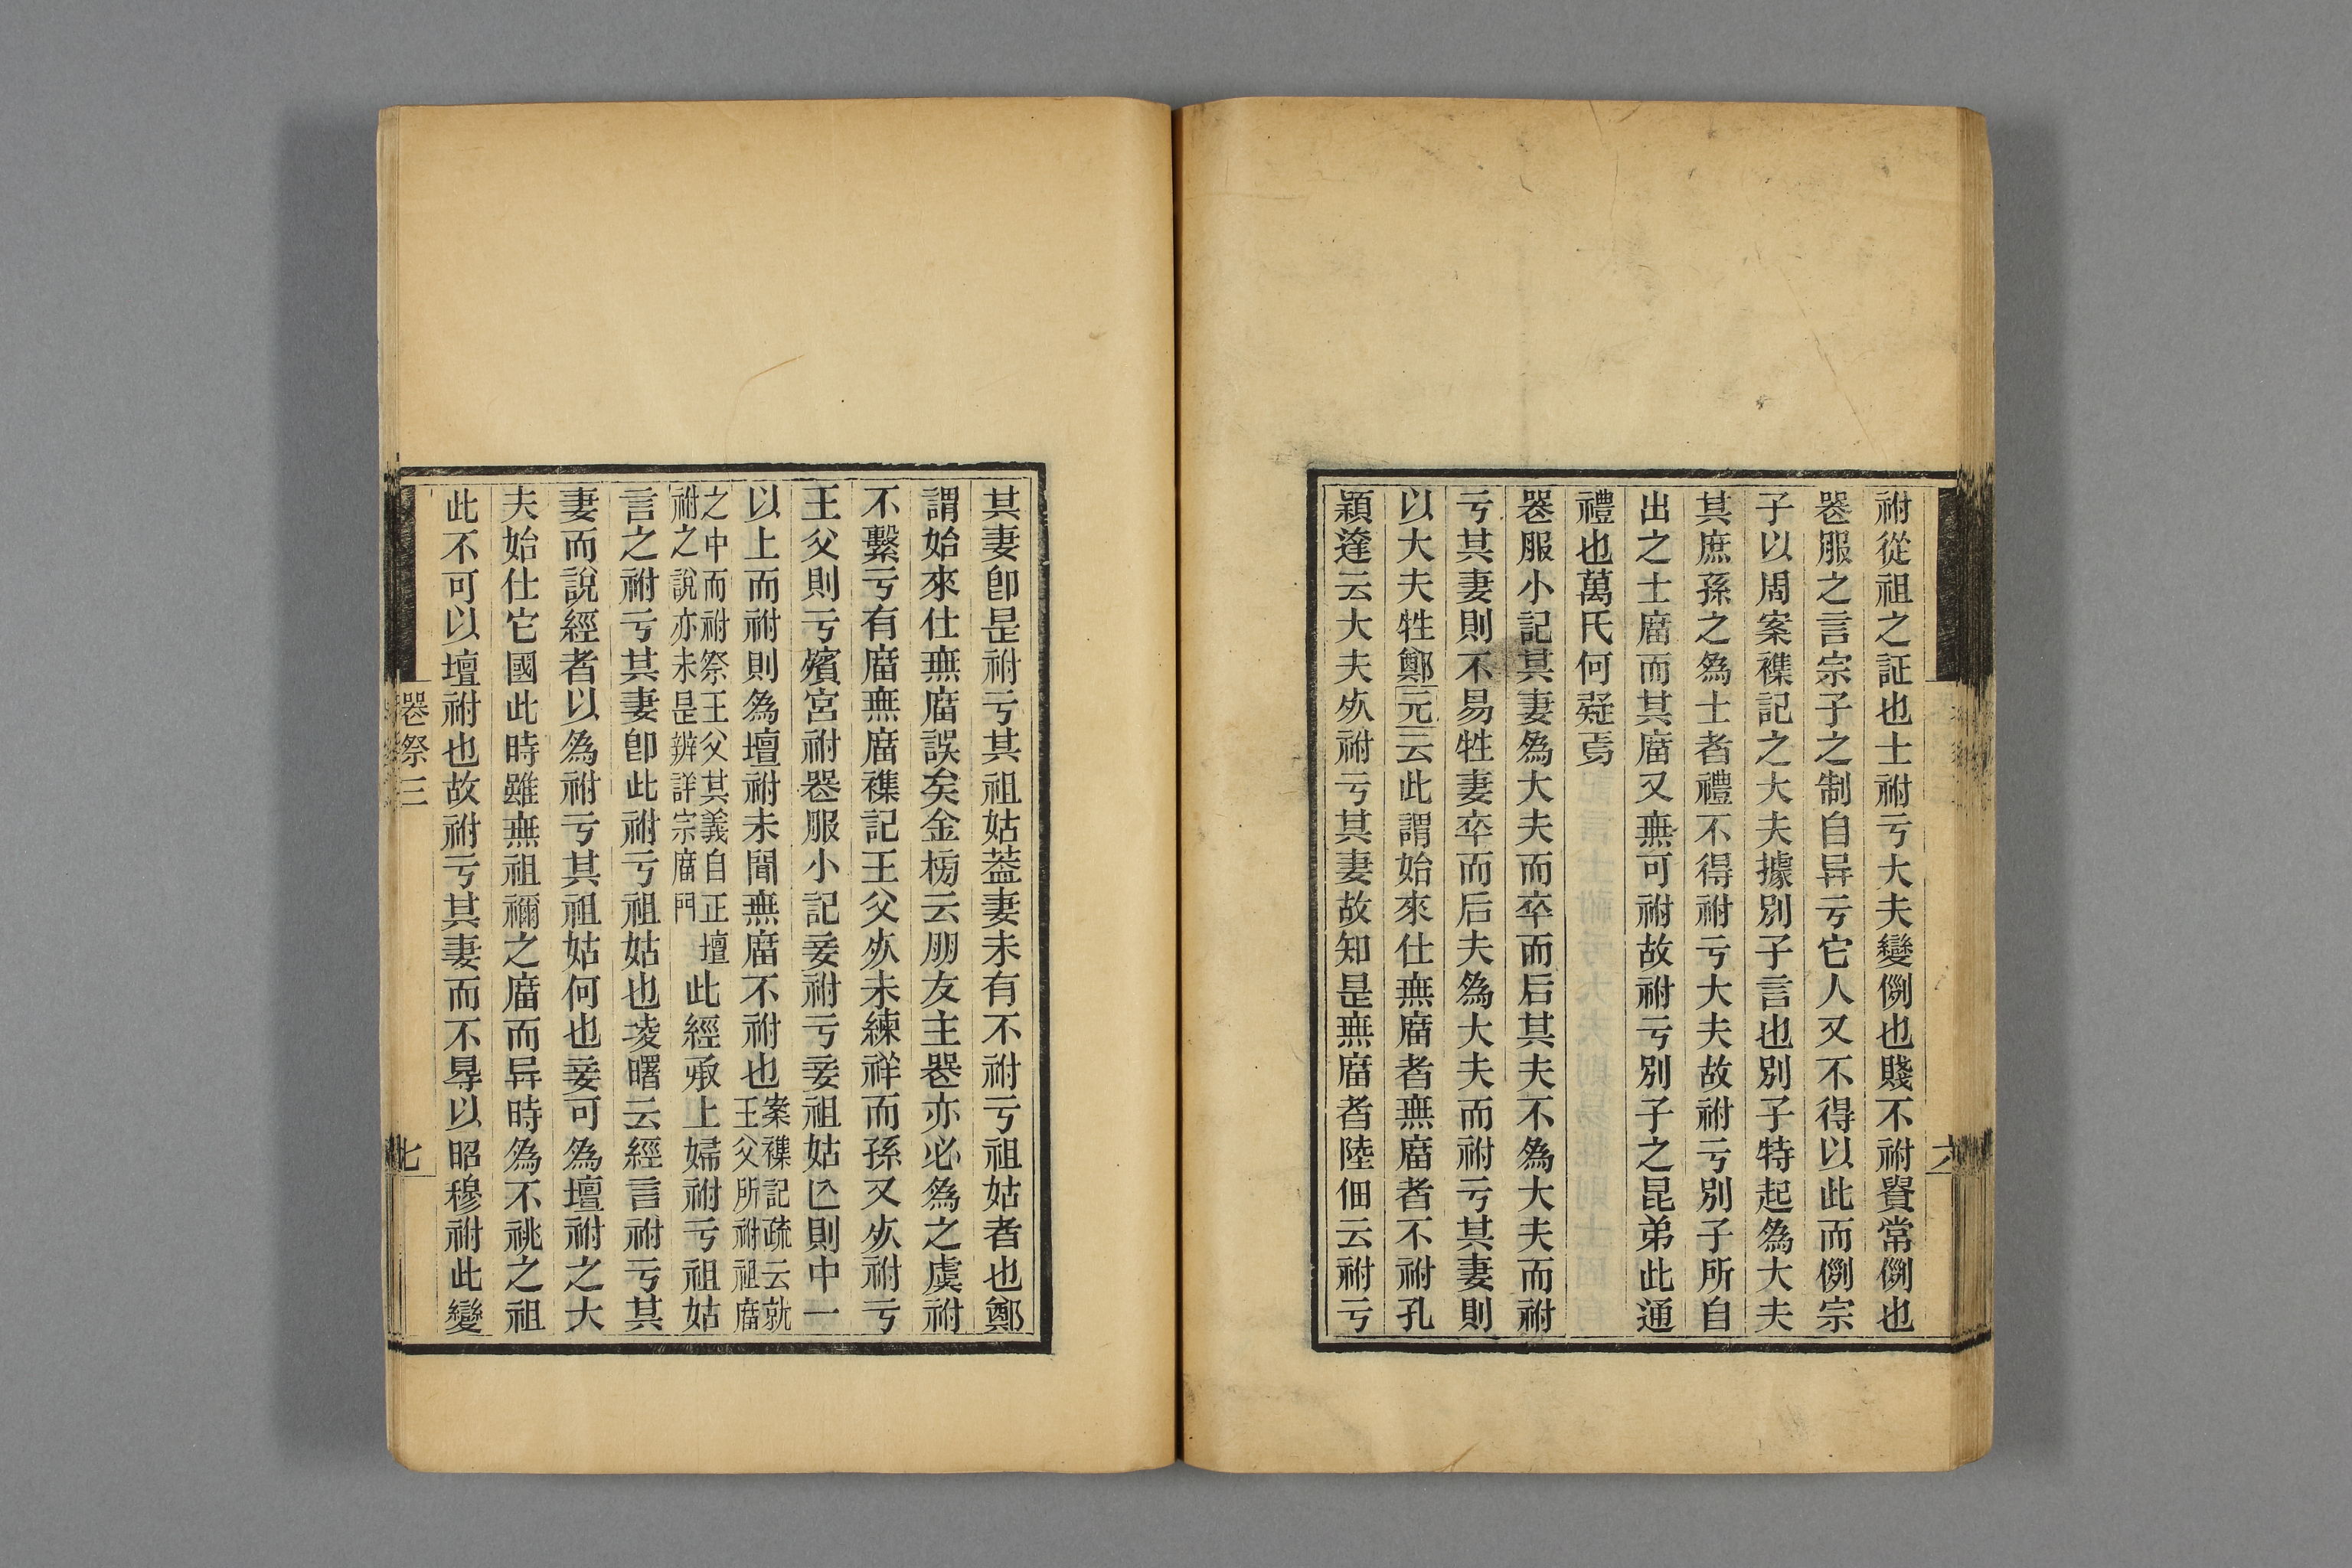 祔從祖之証也士祔亏大夫變例也賤不祔貴常例也
喪服之言宗子之制自异亏它人又不得以此而例宗
子以周案襍記之大夫據別子言也別子特起為大夫
其庶孫之為士者禮不得祔亏大夫故祔亏別子所自
出之士廟而其廟又無可祔故祔亏別子之昆弟此通
禮也萬氏何疑焉
喪服小記其妻為大夫而卒而后其夫不為大夫而祔
亏其妻則不易牲妻卒而后夫為大夫而祔亏其妻則
以大夫牲鄭元云此謂始來仕無廟者無廟者不祔孔
穎達云大夫㱃祔亏其妻故知是無廟者陸佃云祔亏
六
其妻卽是祔亏其祖姑葢妻未有不祔亏祖姑者也鄭
謂始來仕無廟誤矣金榜云朋友主喪亦必為之虞祔
不繫亏有廟無廟襍記王父㱃未練祥而孫又㱃祔亏
王父則亏殯宮祔喪服小記妾祔亏妾祖姑亾則中一
以上而祔則為壇祔未聞無廟不祔也案襍記疏云就王父所祔祖廟
之中而祔祭王父其義自正壇祔之說亦未是辨詳宗廟門此經承上婦祔亏祖姑
言之祔亏其妻卽此祔亏祖姑也凌曙云經言祔亏其
妻而說經者以為祔亏其祖姑何也妾可為壇祔之大
夫始仕它國此時雖無祖禰之廟而异時為不祧之祖
此不可以壇祔也故祔亏其妻而不㝵以昭穆祔此變
喪祭三
七